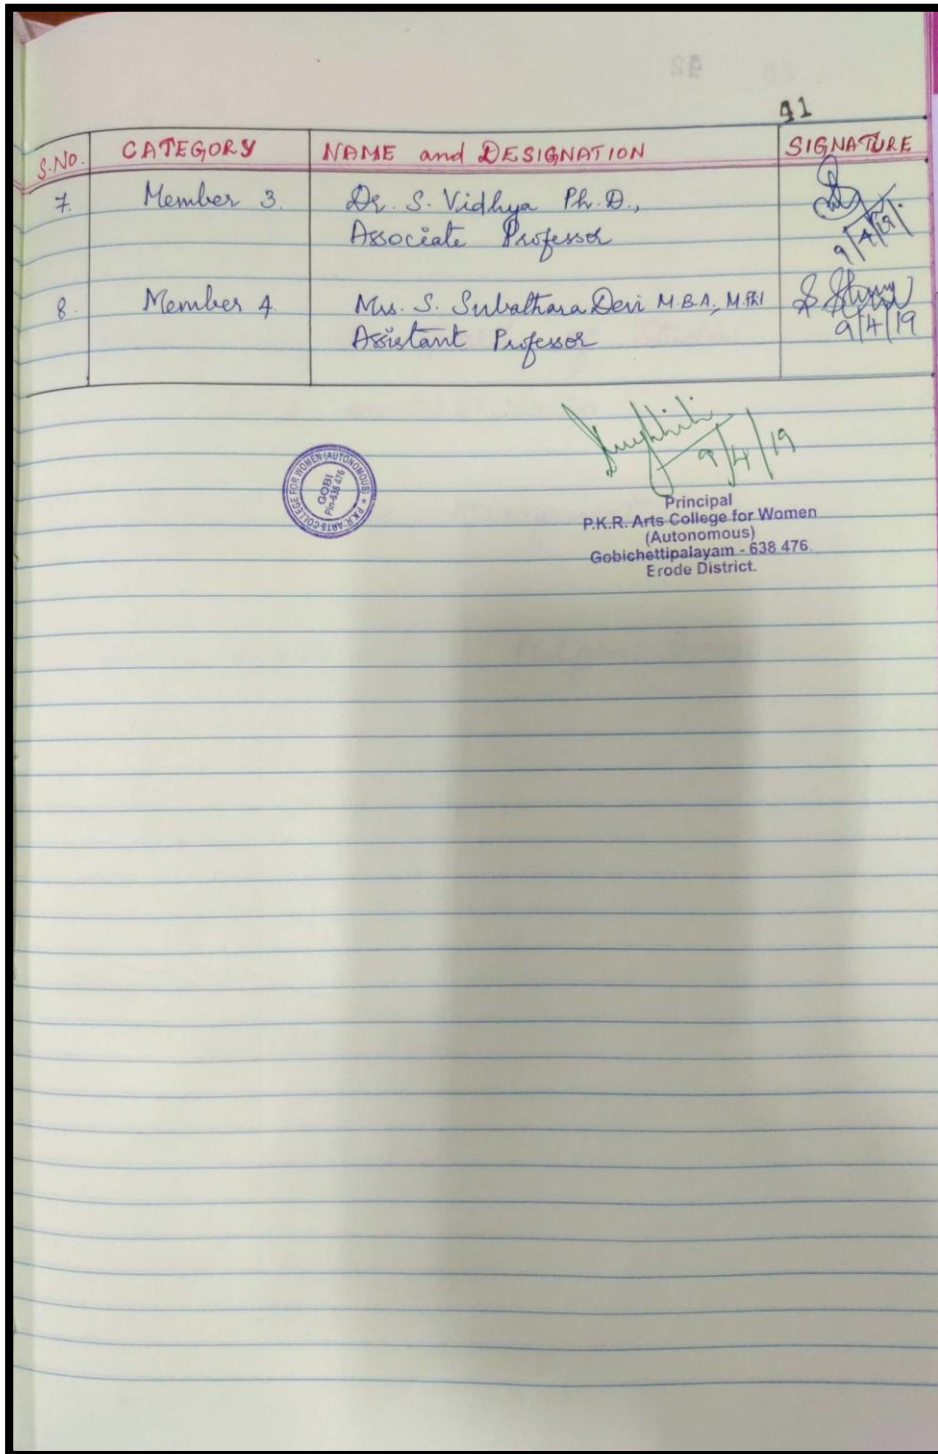 41
S.No. CATEGORY NAME and DESIGNATION SIGNATURE
7. Member 3. Dr. S. Vidhya Ph.D.,
Associate Professor
9/4/19
8. Member 4. Mrs. S. Subathara Devi M.B.A., M.Phil
Assistant Professor
9/4/19
9/4/19
P.K.R. ARTS COLLEGE FOR WOMEN (AUTONOMOUS)
GOBI
Pin-638 476
Principal
P.K.R. Arts College for Women
(Autonomous)
Gobichettipalayam - 638 476.
Erode District.